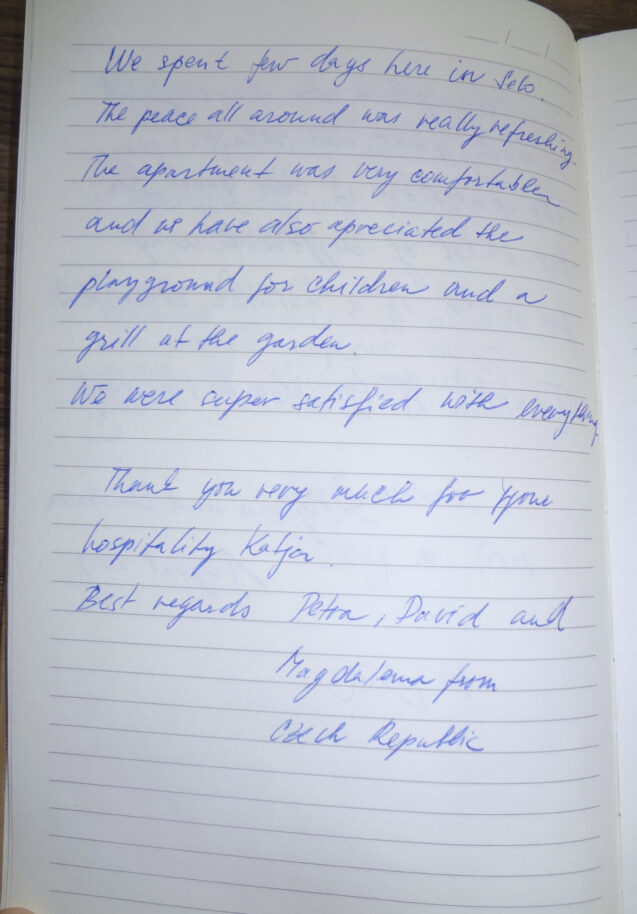 We spent few days here in Selo.
The peace all around was really refreshing.
The apartment was very comfortable
and we have also apreciated the
playground for children and a
grill at the garden.
We were super satisfied with everything.
Thank you very much for your
hospitality Katja.
Best regards Petra, David and
Magdalena from
Czech Republic